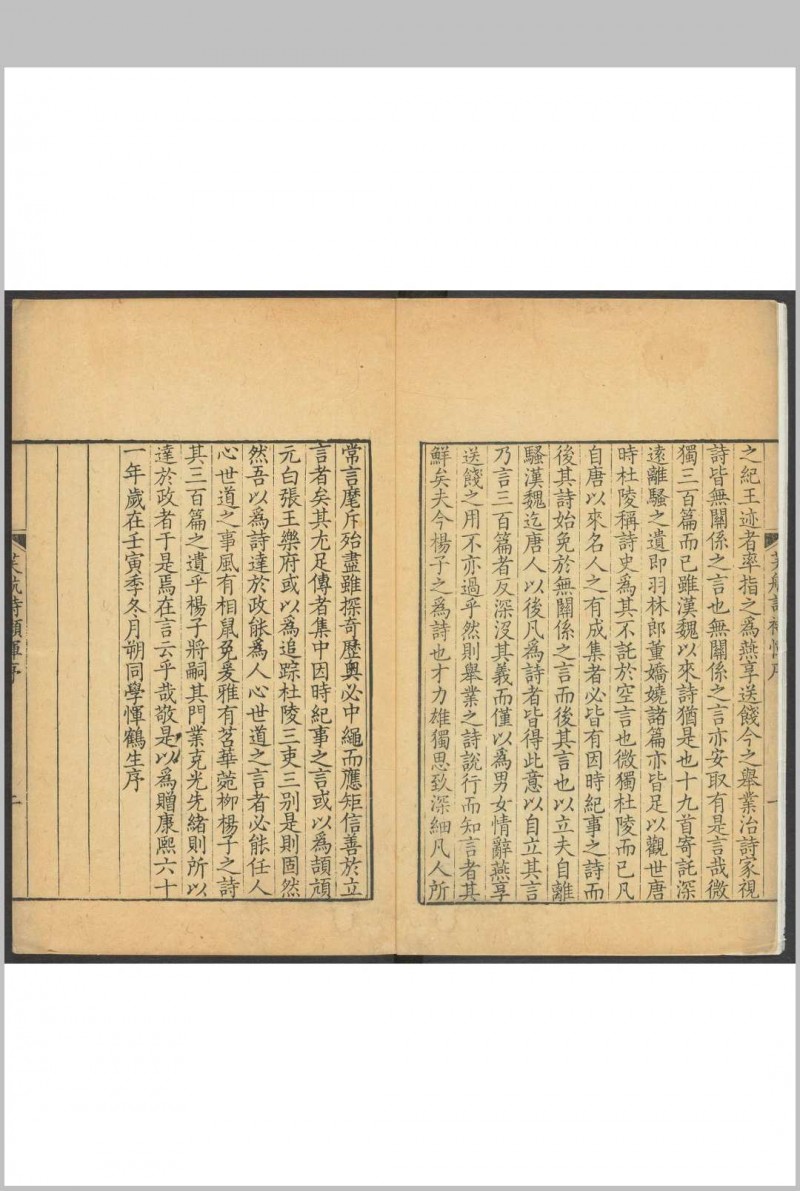 之紀王迹者率指之為燕享送餞今之舉業治詩家視
詩皆無關係之言也無關係之言亦安取有是言哉微
獨三百篇而已雖漢魏以來詩猶是也十九首寄託深
遠離騷之遺即羽林郎董嬌嬈諸篇亦皆足以觀世唐
時杜陵稱詩史為其不託於空言也微獨杜陵而已凡
自唐以來名人之有成集者必皆有因時紀事之詩而
後其詩始免於無關係之言而後其言也以立夫自離
騷漢魏迄唐人以後凡為詩者皆得此意以自立其言
乃言三百篇者反深沒其義而僅以為男女情辭燕享
送餞之用不亦過乎然則舉業之詩說行而知言者其
鮮矣夫今楊子之為詩也才力雄獨思致深細凡人所
常言麾斥殆盡雖探奇歷奥必中繩而應矩信善於立
言者矣其尤足傳者集中因時紀事之言或以為頡頏
元白張王樂府或以為追踪杜陵三吏三别是則固然
然吾以為詩達於政能為人心世道之言者必能任人
心世道之事風有相鼠兔爰雅有苕華菀柳楊子之詩
其三百篇之遺乎楊子將嗣其門業克光先緒則所以
達於政者于是焉在言云乎哉敬是以為贈康熙六十
一年歲在壬寅季冬月朔同學惲鶴生序